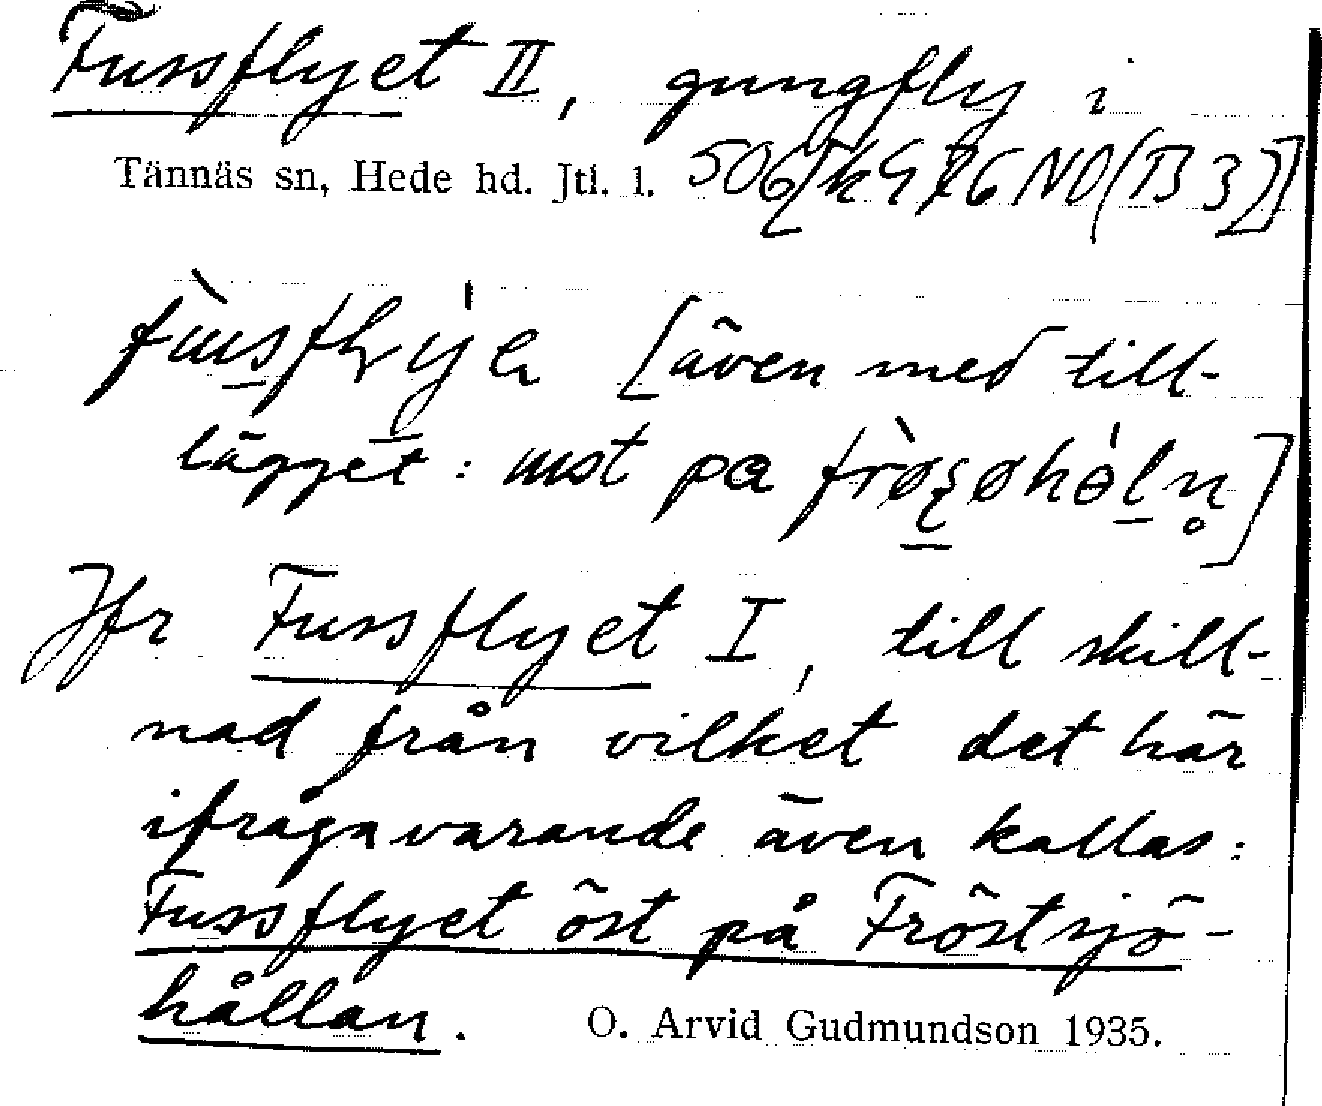 Fussflyet II, gungfly i
Tännäs sn, Hede hd. Jtl. l.
[även med till-
lägget: pa
Jfr Fussflyet I, till skill-
nad från vilket det här
ifrågavarande även kallas:
Fussflyet öst på Fröstsjö-
hållan.
O. Arvid Gudmundson 1935.